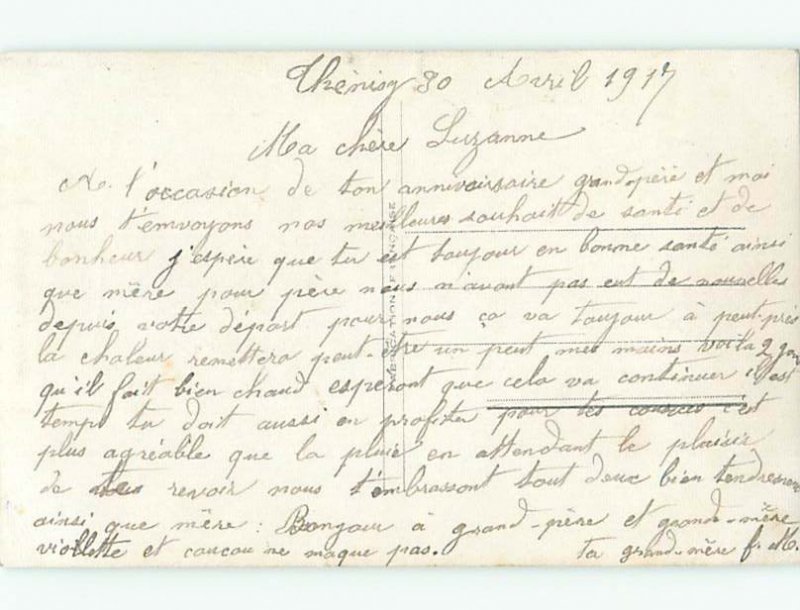 Thénisy 30 Avril 1917
Ma chère Suzanne
A l'occasion de ton annivairsaire grand-père et moi
nous t'emvoyons nos meilleures souhait de santé et de
bonheur j'espère que tu est toujour en bonne santé ainsi
que mère pour père nous n'avont pas eut de nouvelles
depuis votre départ pour nous ça va toujour à peut-près
la chaleur remettera peut-être un peut mes mains voila 2 jour
qu'il fait bien chaud esperont que cela va continuer il est
temp tu doit aussi en profiter pour tes courses c'est
plus agréable que la pluie en attendant le plaisir
de revoir nous t'embrassont tout deux bien tendrement
ainsi que mère : Bonjour à grand-père et grand-mère
viollette et coucou ne maque pas. ta grand-mère f. M.
FABRICATION FRANÇAISE